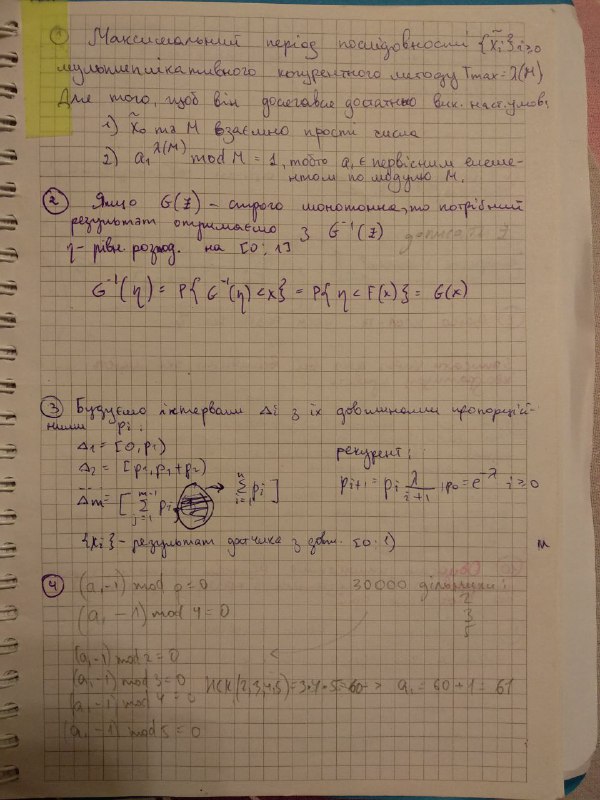 ① Максимальний період послідовності {x̃ᵢ}i≥0
мультиплікативного конгурентного методу Tmax = λ(M)
Для того, щоб він досягався достатньо вик. наст. умов:
1) x̃₀ та M взаємно прості числа
2) a₁^λ(M) mod M = 1, тобто a₁ є первісним елеме-
нтом по модулю M.
② Якщо G(z) – строго монотонна, то потрібний
результат отримаємо з G⁻¹(z)
η – рівн. розпод. на [0;1]
G⁻¹(η) = P{G⁻¹(η) < x} = P{η < F(x)} = G(x)
③ Будуємо інтервали Δi з їх довжинами пропорцій-
ними pi:
Δ₁ = [0, p₁)
Δ₂ = [p₁, p₁+p₂)
Δm = [Σ j=1 m-1 pj → Σ i=1 n pi]
рекурент:
pi+1 = pi λ/(i+1), p₀ = e^-λ i ≥ 0
{xi} – результат датчика з [0;1)
м
④ (a₁ -1) mod p = 0
(a₁ -1) mod 4 = 0
30000 дільники:
2
3
5
(a₁ -1) mod 2 = 0
(a₁ -1) mod 3 = 0
(a₁ -1) mod 4 = 0
(a₁ -1) mod 5 = 0
НСК(2,3,4,5) = 3·4·5 = 60 -> a₁ = 60 + 1 = 61